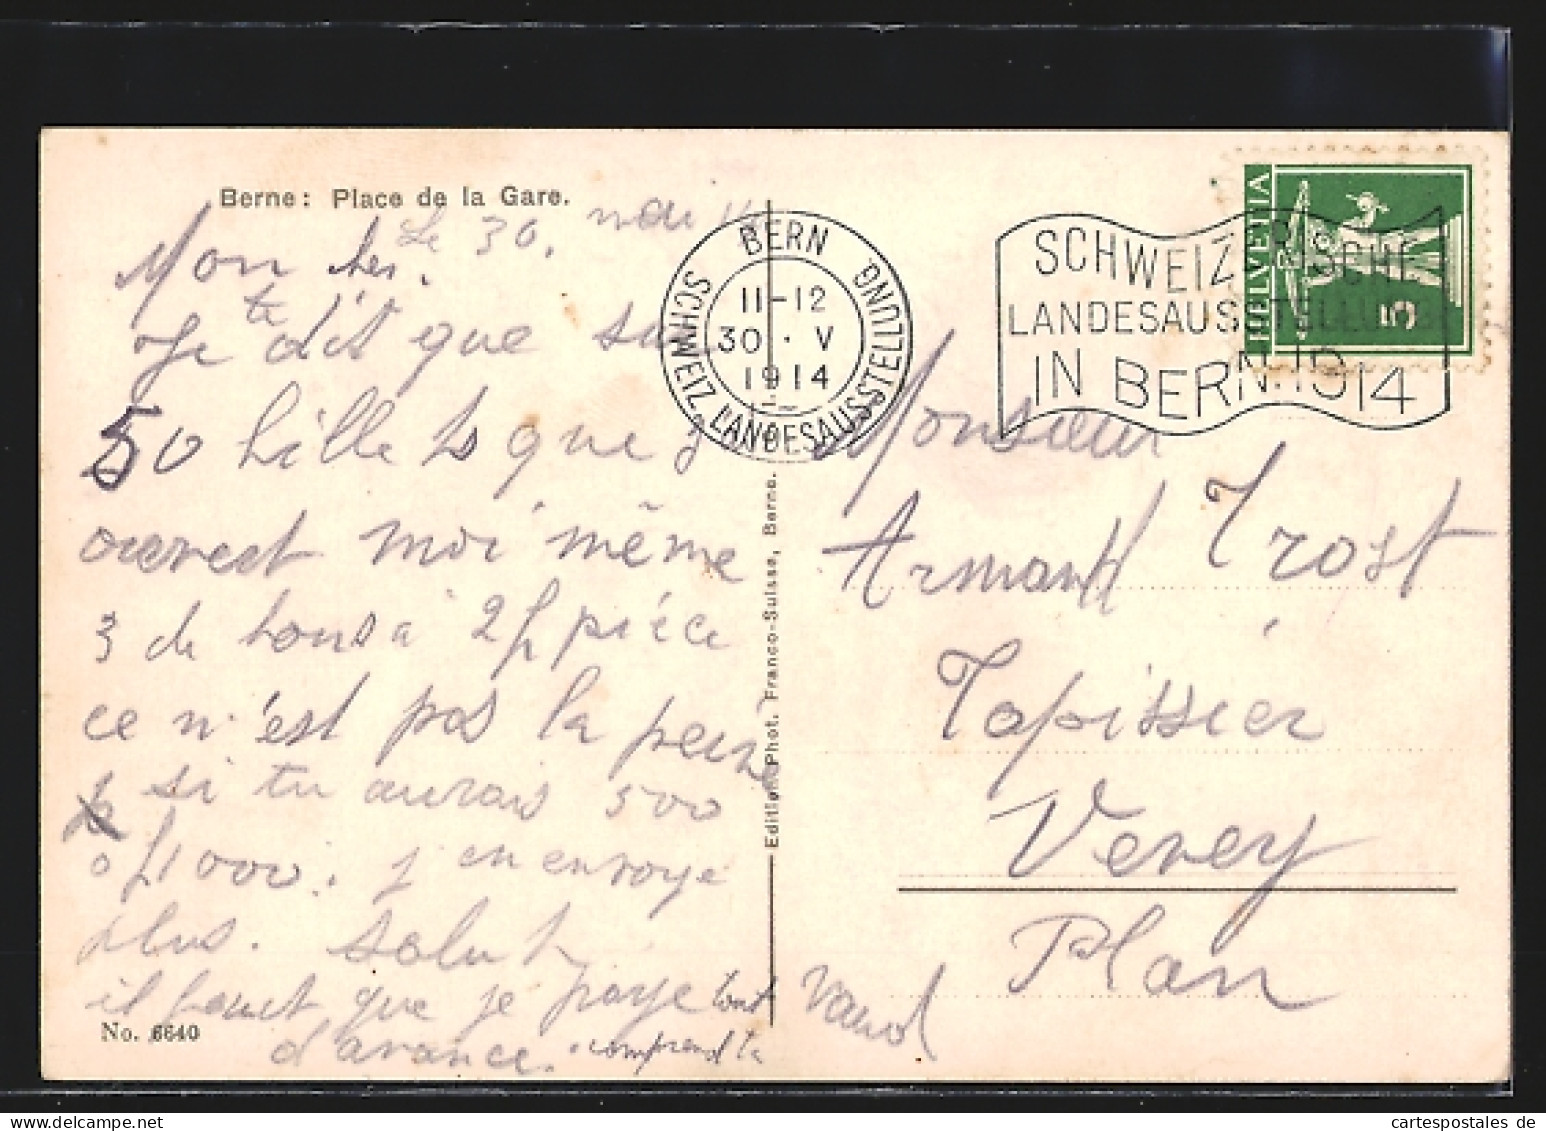 Berne: Place de la Gare.
Le 30. mai 14
Mon cher.
Je te dit que su
50 billets que j
ouvrest moi même
3 de bons a 2 f pièce
ce n'est pas la peine
si tu aurais 500
o f 1000. j'en envoye
plus. salut
il faut que je paye tout
d'avance. comprend tu
No. 6640
BERN
SCHWEIZ. LANDESAUSSTELLUNG
11-12
30. V
1914
SCHWEIZERISCHE
LANDESAUSSTELLUNG
IN BERN. 1914
HELVETIA
5
Edition Phot. Franco-Suisse, Berne.
Monsieur
Armand Trost
Tapissier
Vevey
Plan
Vaud
cartespostales de